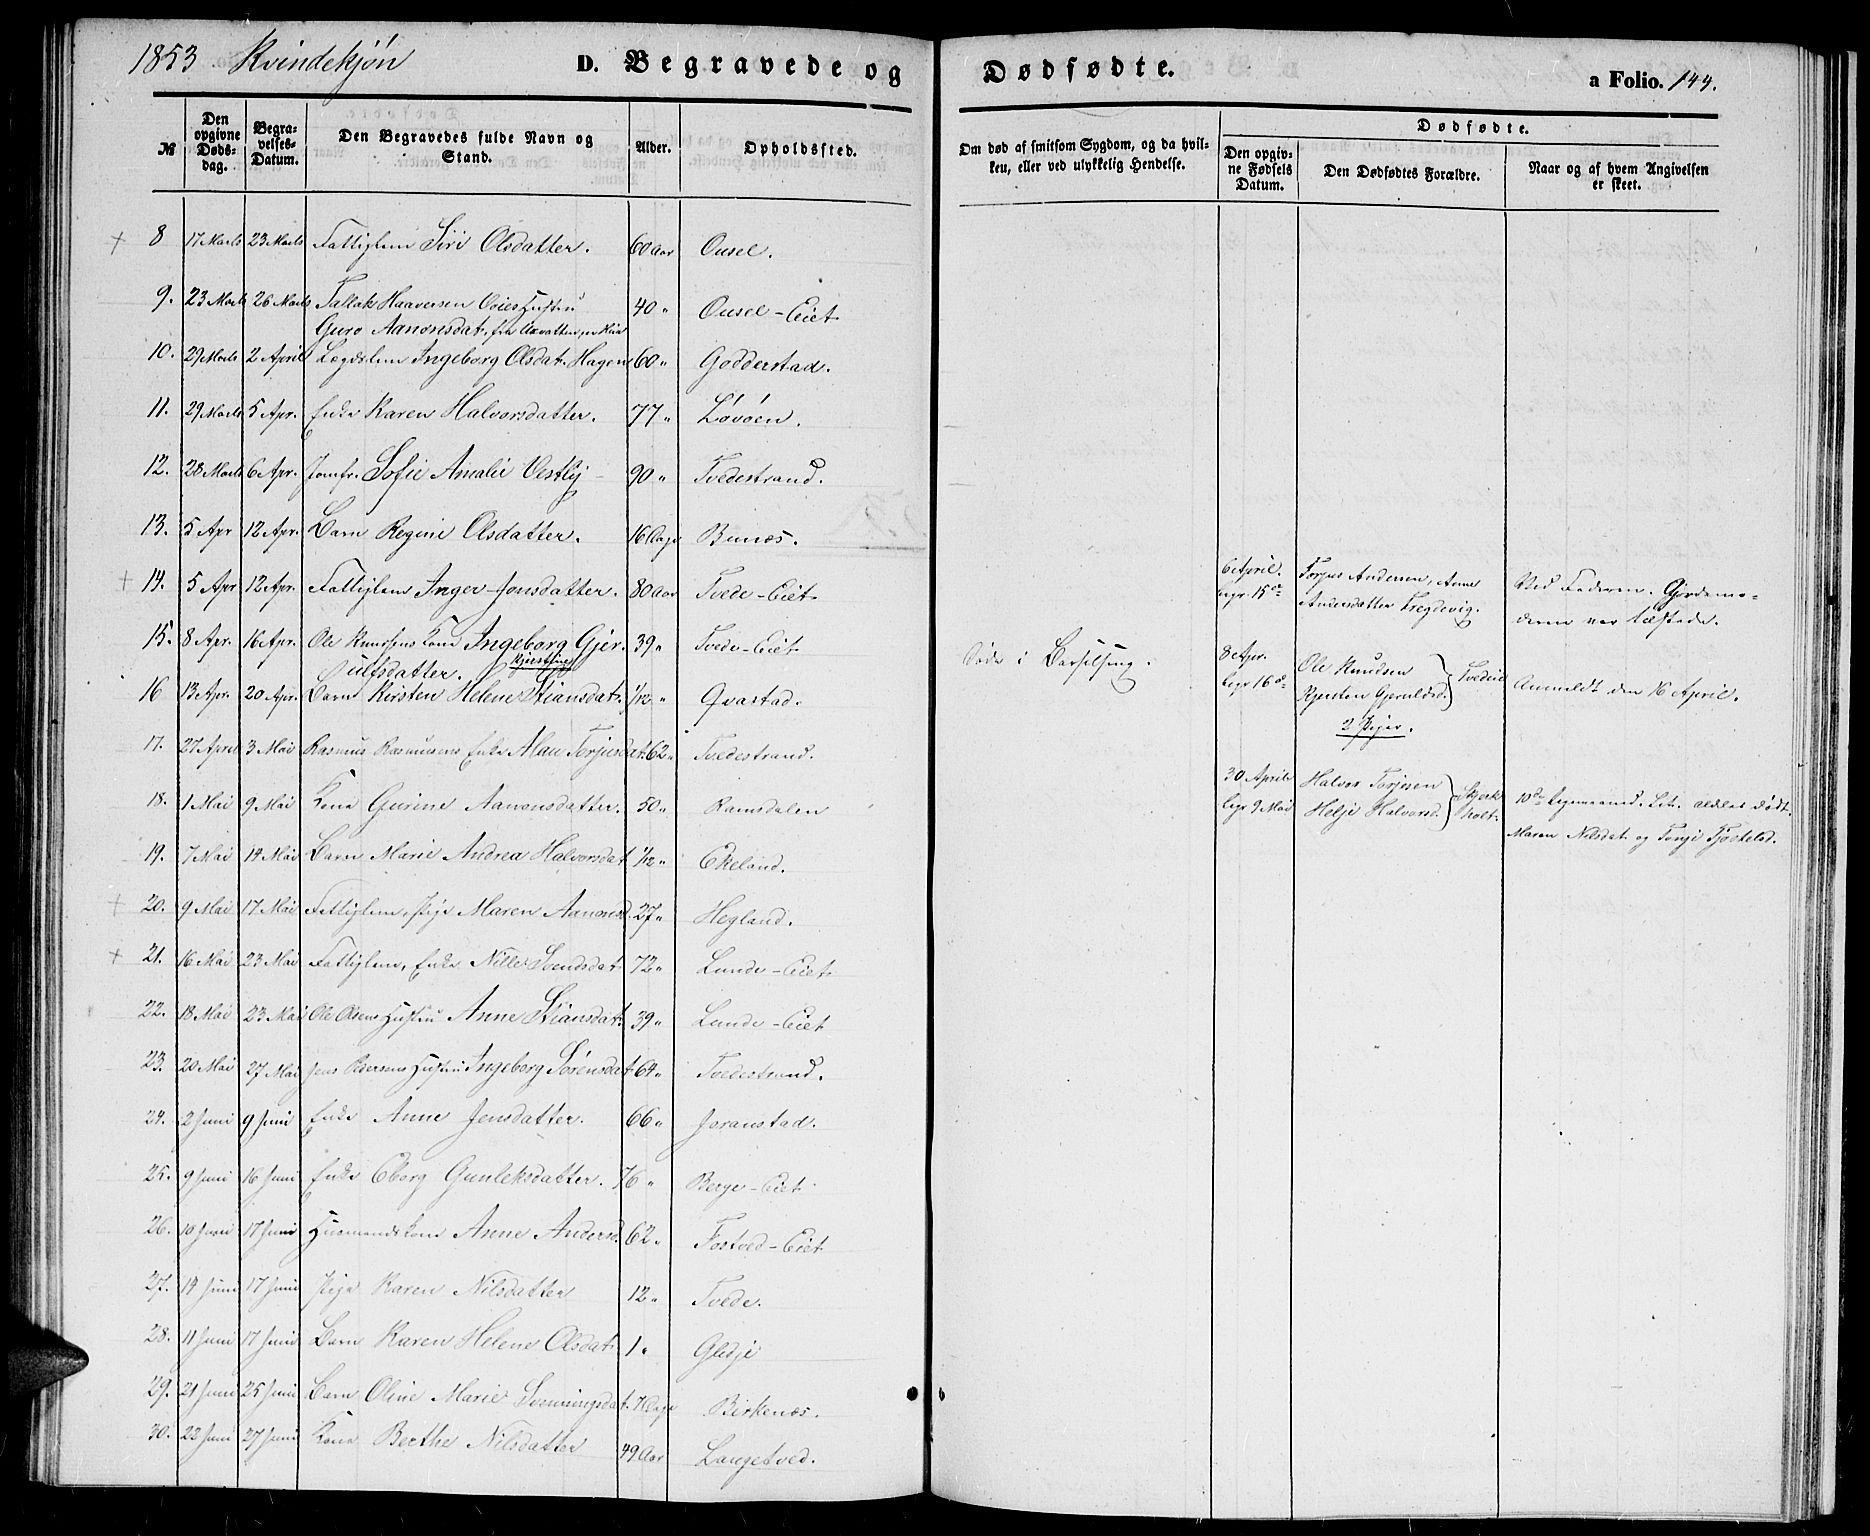 1853 Kvindekjön
D. Begravede og Dødfødte.
a Folio. 144.
№
Den opgivne Døds-dag.
Begra-velses-Datum.
Den Begravedes fulde Navn og Stand.
Alder.
Opholdssted.
Om død af smitsom Sygdom, og da hvil-
ken, eller ved ulykkelig Hendelse.
Dødfødte.
Den opgiv-ne Fødsels Datum.
Den Dødfødtes Forældre.
Naar og af hvem Angivelsen er skeet.
8 17 Marts 23 Marts Fattiglem Siri Olsdatter. 60 Aar Ousel.
9. 23 Marts 26 Marts Tallak Haaversen Hustru 40 " Ousel-Eiet
Guro Aanonsdat. fra
10. 29 Marts 2 April Lægdslem Ingeborg Olsdat. Hagen 60 " Godderstad.
11. 29 Marts 5 Apr. Enke Karen Halvorsdatter. 77 " Lövöen.
12. 28 Marts 6 Apr. Jomfr. Sofie Amalie Vestby 90 " Tvedestrand.
13. 5 Apr 12 Apr. Barn Regine Olsdatter. 16 Dage Bunæs.
14. 5 Apr 12 Apr. Fattiglem Inger Jonsdatter. 80 Aar Tvede-Eiet
15. 8 Apr. 16 Apr. Ole Knudsens Kone Ingeborg Gjer- 39 " Tvede-Eiet
ulfsdatter. Kjerstine
16 13 Apr. 20 Apr. Barn Kirsten Helene Stiansdat. 1/12 " Qvastad.
17. 27 April 3 Mai Rasmus Rasmusens Enke Alau Torjusdat. 62 " Tvedestrand.
18. 1 Mai 9 Mai Kone Gurine Aanonsdatter. 50 " Ramsdalen
19. 7 Mai 14 Mai Barn Marie Andrea Halvorsdat 1/12 " Ekeland.
20. 9 Mai 17 Mai Fattiglem, Pige Maren Aanonsd. 27 " Hegland.
21. 16 Mai 23 Mai Fattiglem, Enke Nille Svendsdat 72 " Lunde-Eiet
22. 18 Mai 23 Mai Ole Olsens Hustru Anne Stiansdat. 39 " Lunde-Eiet
23. 20 Mai 27 Mai Jens Pedersens Hustru Ingeborg Sörensdat 64 " Tvedestrand.
24. 2 Juni 9 Juni Enke Anne Jensdatter. 66 " Joranstad.
25. 9 Juni 16 Juni Enke Oborg Gunleksdatter. 76 " Berge-Eiet
26. 10 Juni 17 Juni Husmandskone Anne Andersd. 62 " Fostved-Eiet
27. 14 Juni 17 Juni Pige Karen Nilsdatter 12 " Tvede.
28. 11 Juni 17 Juni Barn Karen Helene Olsdat. 1 " Gledje
29. 21 Juni 25 Juni Barn Oline Marie Svenningsdat. 7 Dage Birkenæs.
30. 22 Juni 27 Juni Kone Berthe Nilsdatter 49 Aar Langetved.
Döde i Barselseng.
6 April. Torjus Andersen, Anne Ved Faderen. Gjordemo-
begr. 15de Andersdatter Fregdevig. deren var tilstede.
8 Apr. Ole Knudsen Tvedeeie
begr 16de Kjersten Gjeruldsd. Anmeldt den 16 April.
2 Piger.
30 April Halvor Torjesen Skjerk-
begr 9 Mai Helje Halvorsd. holt. 10de aldeles dödt.
Maren Nilsdat og Torje Tjöstelsd.